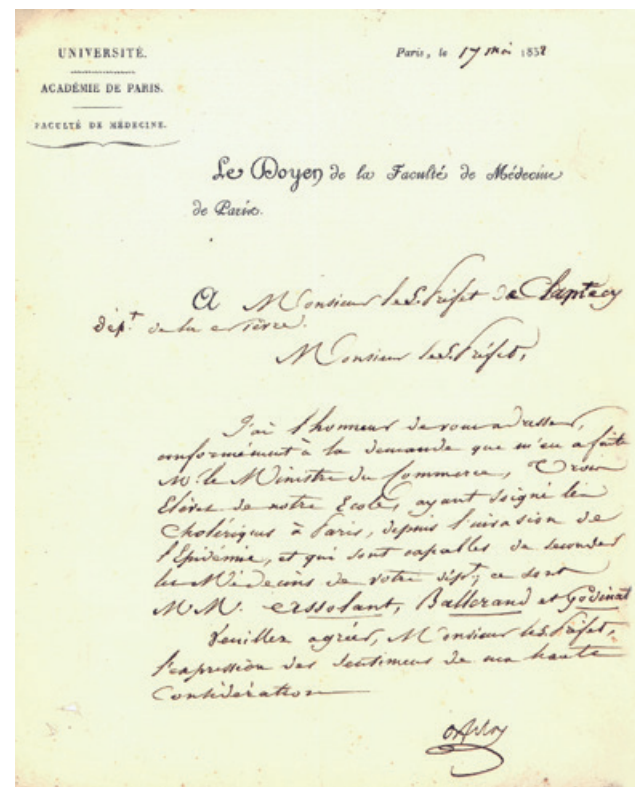 UNIVERSITÉ.
ACADÉMIE DE PARIS.
FACULTÉ DE MÉDECINE.
Paris, le 17 mai 1832
Le Doyen de la Faculté de Médecine
de Paris.
A Monsieur le S. Préfet de
dépt. de la
Monsieur le S. Préfet,
J'ai l'honneur de vous adresser,
conformément à la demande que m'en a faite
Mr. le Ministre du Commerce, Trois
Elèves de notre Ecole, ayant soigné les
Cholériques à Paris, depuis l'invasion de
l'Epidémie, et qui sont capables de seconder
les Médecins de votre dépt.; ce sont
MM. Assolant, Ballerand et Godinat
Veuillez agréer, Monsieur le S. Préfet,
l'expression des sentimens de ma haute
Considération